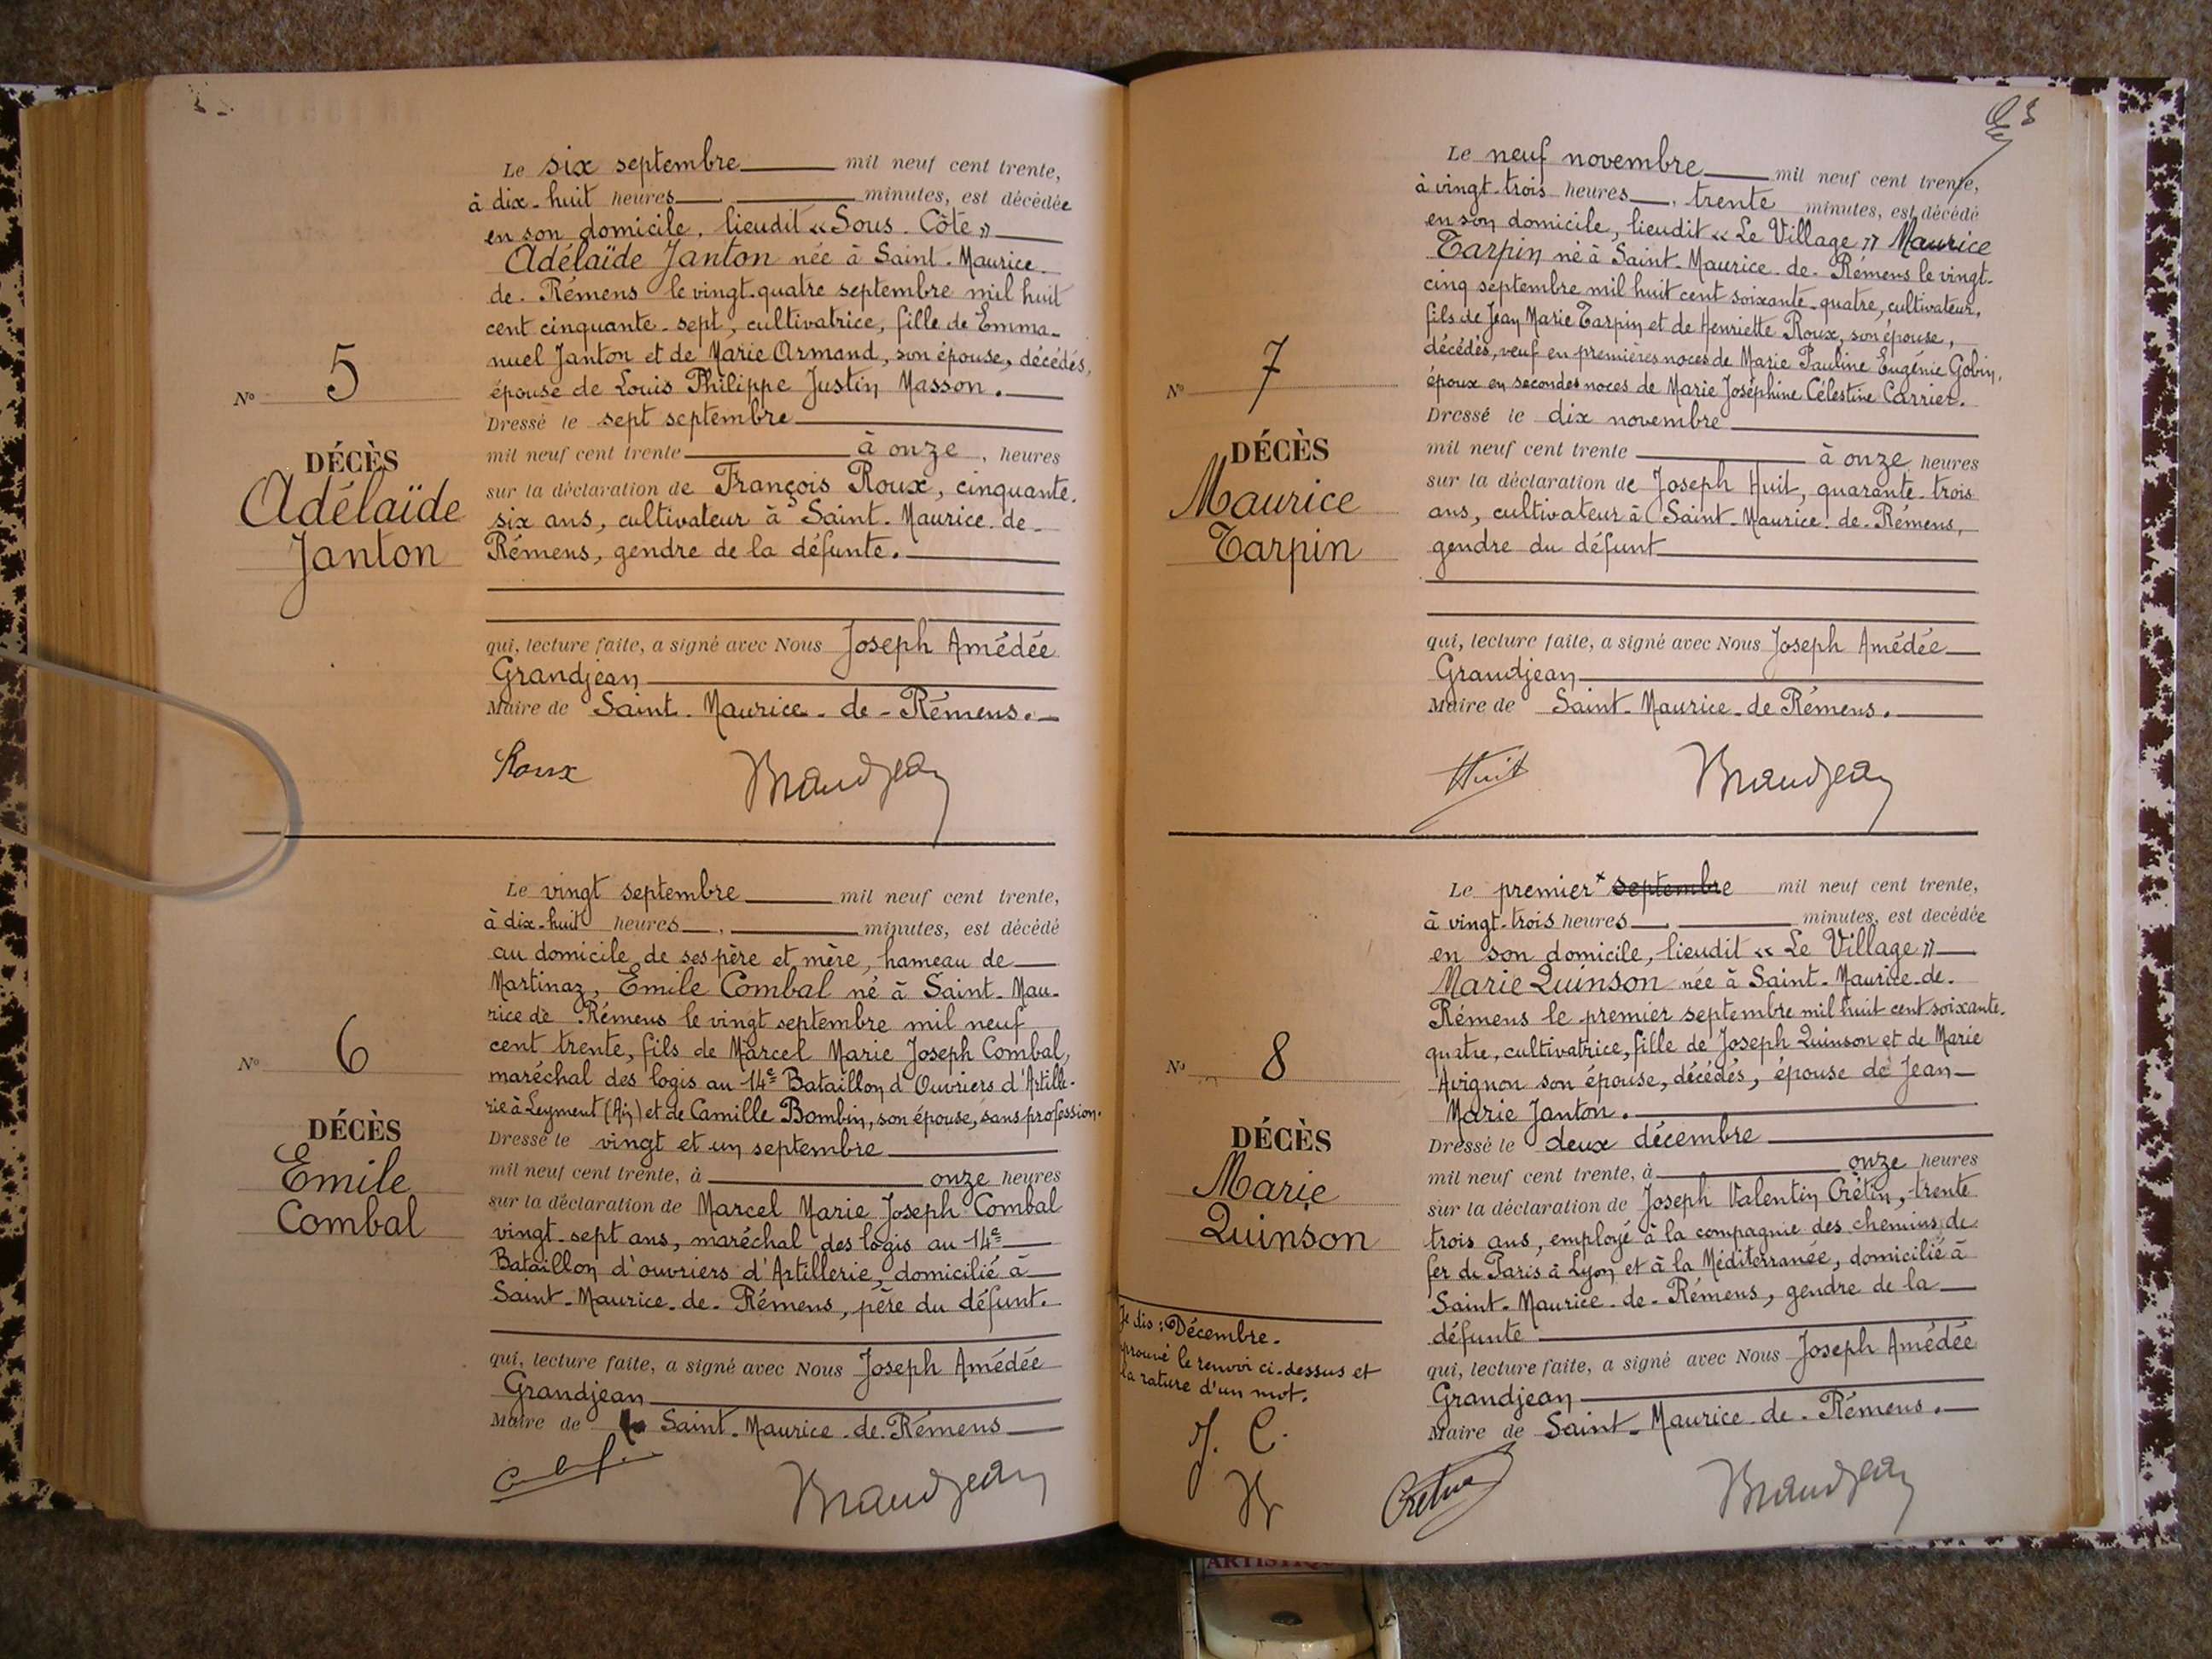 Le six septembre mil neuf cent trente,
à dix-huit heures , minutes, est décédée
en son domicile, lieudit « Sous-Côte »
Adélaïde Janton née à Saint-Maurice-
de-Rémens le vingt-quatre septembre mil huit
cent cinquante-sept, cultivatrice, fille de Emma-
nuel Janton et de Marie Armand, son épouse, décédés,
épouse de Louis Philippe Justin Masson.
Nº 5
Dressé le sept septembre
mil neuf cent trente à onze , heures
DÉCÈS
Adélaïde
Janton
sur la déclaration de François Roux, cinquante-
six ans, cultivateur à Saint-Maurice-de-
Rémens, gendre de la défunte.
qui, lecture faite, a signé avec Nous Joseph Amédée
Grandjean
Maire de Saint-Maurice-de-Rémens.
Roux Grandjean
Le vingt septembre mil neuf cent trente,
à dix-huit heures , minutes, est décédé
au domicile de ses père et mère, hameau de
Martinaz, Emile Combal né à Saint-Mau-
rice de Rémens le vingt septembre mil neuf
cent trente, fils de Marcel Marie Joseph Combal,
maréchal des logis au 14e Bataillon d'Ouvriers d'Artille-
rie à Leyment (Ain) et de Camille Bombin, son épouse, sans profession.
Nº 6
DÉCÈS
Emile
Combal
Dressé le vingt et un septembre
mil neuf cent trente, à onze heures
sur la déclaration de Marcel Marie Joseph Combal
vingt-sept ans, maréchal des logis au 14e
Bataillon d'ouvriers d'Artillerie, domicilié à
Saint-Maurice-de-Rémens, père du défunt.
qui, lecture faite, a signé avec Nous Joseph Amédée
Grandjean
Maire de Saint-Maurice-de-Rémens
Grandjean
Le neuf novembre mil neuf cent trente,
à vingt-trois heures , trente minutes, est décédé
en son domicile, lieudit « Le Village » Maurice
Tarpin né à Saint-Maurice-de-Rémens le vingt-
cinq septembre mil huit cent soixante-quatre, cultivateur,
fils de Jean Marie Tarpin et de Henriette Roux, son épouse,
décédés, veuf en premières noces de Marie Pauline Eugénie Gobin,
époux en secondes noces de Marie Joséphine Célestine Carrier.
Nº 7
DÉCÈS
Maurice
Tarpin
Dressé le dix novembre
mil neuf cent trente à onze heures
sur la déclaration de Joseph Huit, quarante-trois
ans, cultivateur à Saint-Maurice-de-Rémens,
gendre du défunt
qui, lecture faite, a signé avec Nous Joseph Amédée
Grandjean
Maire de Saint-Maurice-de Rémens.
Huit Grandjean
Le premier x septembre mil neuf cent trente,
à vingt-trois heures , minutes, est décédée
en son domicile, lieudit « Le Village »
Marie Quinson née à Saint-Maurice-de-
Rémens le premier septembre mil huit cent soixante-
quatre, cultivatrice, fille de Joseph Quinson et de Marie
Avignon son épouse, décédés, épouse de Jean-
Marie Janton.
Nº 8
DÉCÈS
Marie
Quinson
Dressé le deux décembre
mil neuf cent trente, à onze heures
sur la déclaration de Joseph Valentin Crétin, trente
trois ans, employé à la compagnie des chemins de
fer de Paris à Lyon et à la Méditerranée, domicilié à
Saint-Maurice-de-Rémens, gendre de la
défunte
qui, lecture faite, a signé avec Nous Joseph Amédée
Grandjean
Maire de Saint-Maurice-de-Rémens.
Je dis : Décembre.
prouvé le renvoi ci-dessus et
la rature d'un mot.
J. C.
Crétin Grandjean
ARTISTIQU